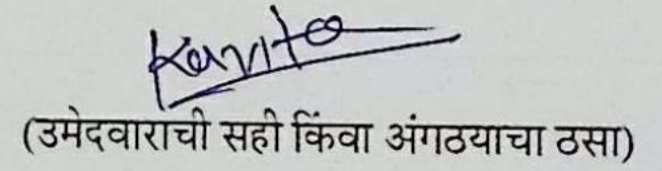 Kavita
(उमेदवाराची सही किंवा अंगठयाचा ठसा)